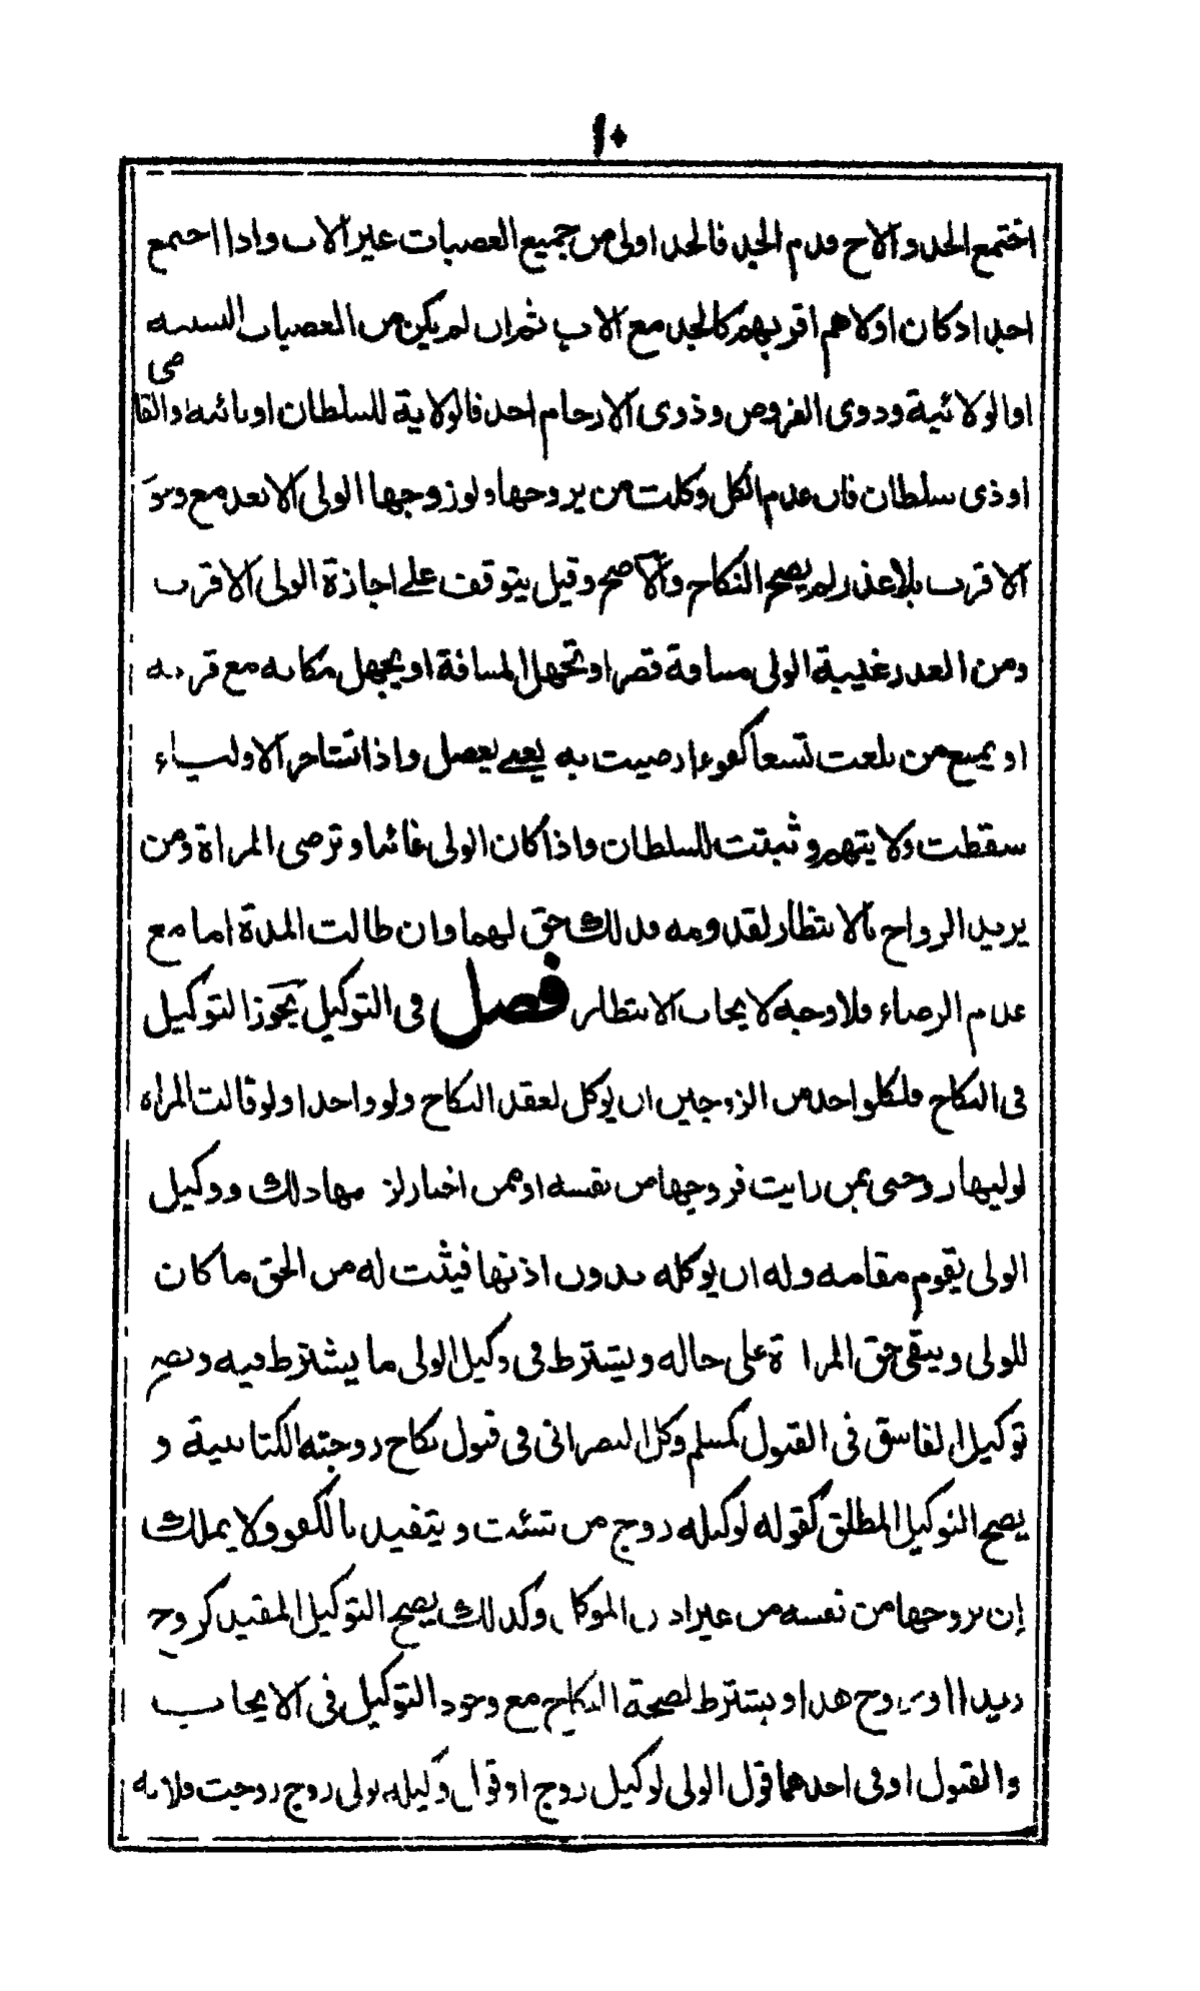 ١٠
اجتمع الجد والاخ قدم الجد فالجد اولى من جميع العصبات غير الاب واذا اجتمع
احد اذ كان اولاهم اقربهم كالجد مع الاب ثم ان لم يكن من العصبات النسبيه
او الولائية وذوى الفروض وذوى الارحام احد فالولاية للسلطان او نائبه والقاضى
او ذى سلطان فان عدم الكل وكلت من يزوجها ولو زوجها الولى الابعد مع وجود
الاقرب بلا عذر لم يصح النكاح والاصح وقيل يتوقف على اجازة الولى الاقرب
ومن العذر غيبة الولى مسافة قصر او تجهل المسافة او يجهل مكانه مع قربه
او يمنع من بلغت تسعا كفوءا رضيت به يعنى يعضل واذا تشاجر الاولياء
سقطت ولايتهم وثبتت للسلطان واذا كان الولى غائبا وترضى المراة ومن
يريد الزواج بالانتظار لقدومه فذلك حق لهما وان طالت المدة اما مع
عدم الرضاء فلا وجه لايجاب الانتظار فصل فى التوكيل يجوز التوكيل
فى النكاح فلكل واحد من الزوجين ان يوكل لعقد النكاح ولو واحدا ولو قالت المراه
لوليها زوجنى بمن رايت فزوجها من نفسه او ممن اختار لزمها ذلك ووكيل
الولى يقوم مقامه وله ان يوكله بدون اذنها فيثبت له من الحق ما كان
للولى ويبقى حق المراة على حاله ويشترط فى وكيل الولى ما يشترط فيه ويصح
توكيل الفاسق فى القبول كمسلم وكل النصرانى فى قبول نكاح زوجته الكتابية و
يصح التوكيل المطلق كقوله لوكيله زوج من شئت ويتقيد بالكفو ولا يملك
إن يزوجها من نفسه من غير اذن الموكل وكذلك يصح التوكيل المقيد كزوج
زيدا او زوج هذا ويشترط لصحة النكاح مع وجود التوكيل فى الايجاب
والقبول او فى احدهما قول الولى لوكيل زوج او قول وكيله لولى زوج زوجت فلانه